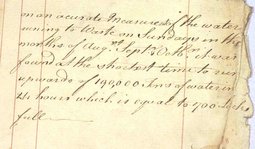 on an accurate Measures of the water
uning to Waste on Sundays in the
months of Augst. Septr. Octr. it was
found at the shortest time to run
upwards of 190,000 of water in
24 hours which is equal to 700
full